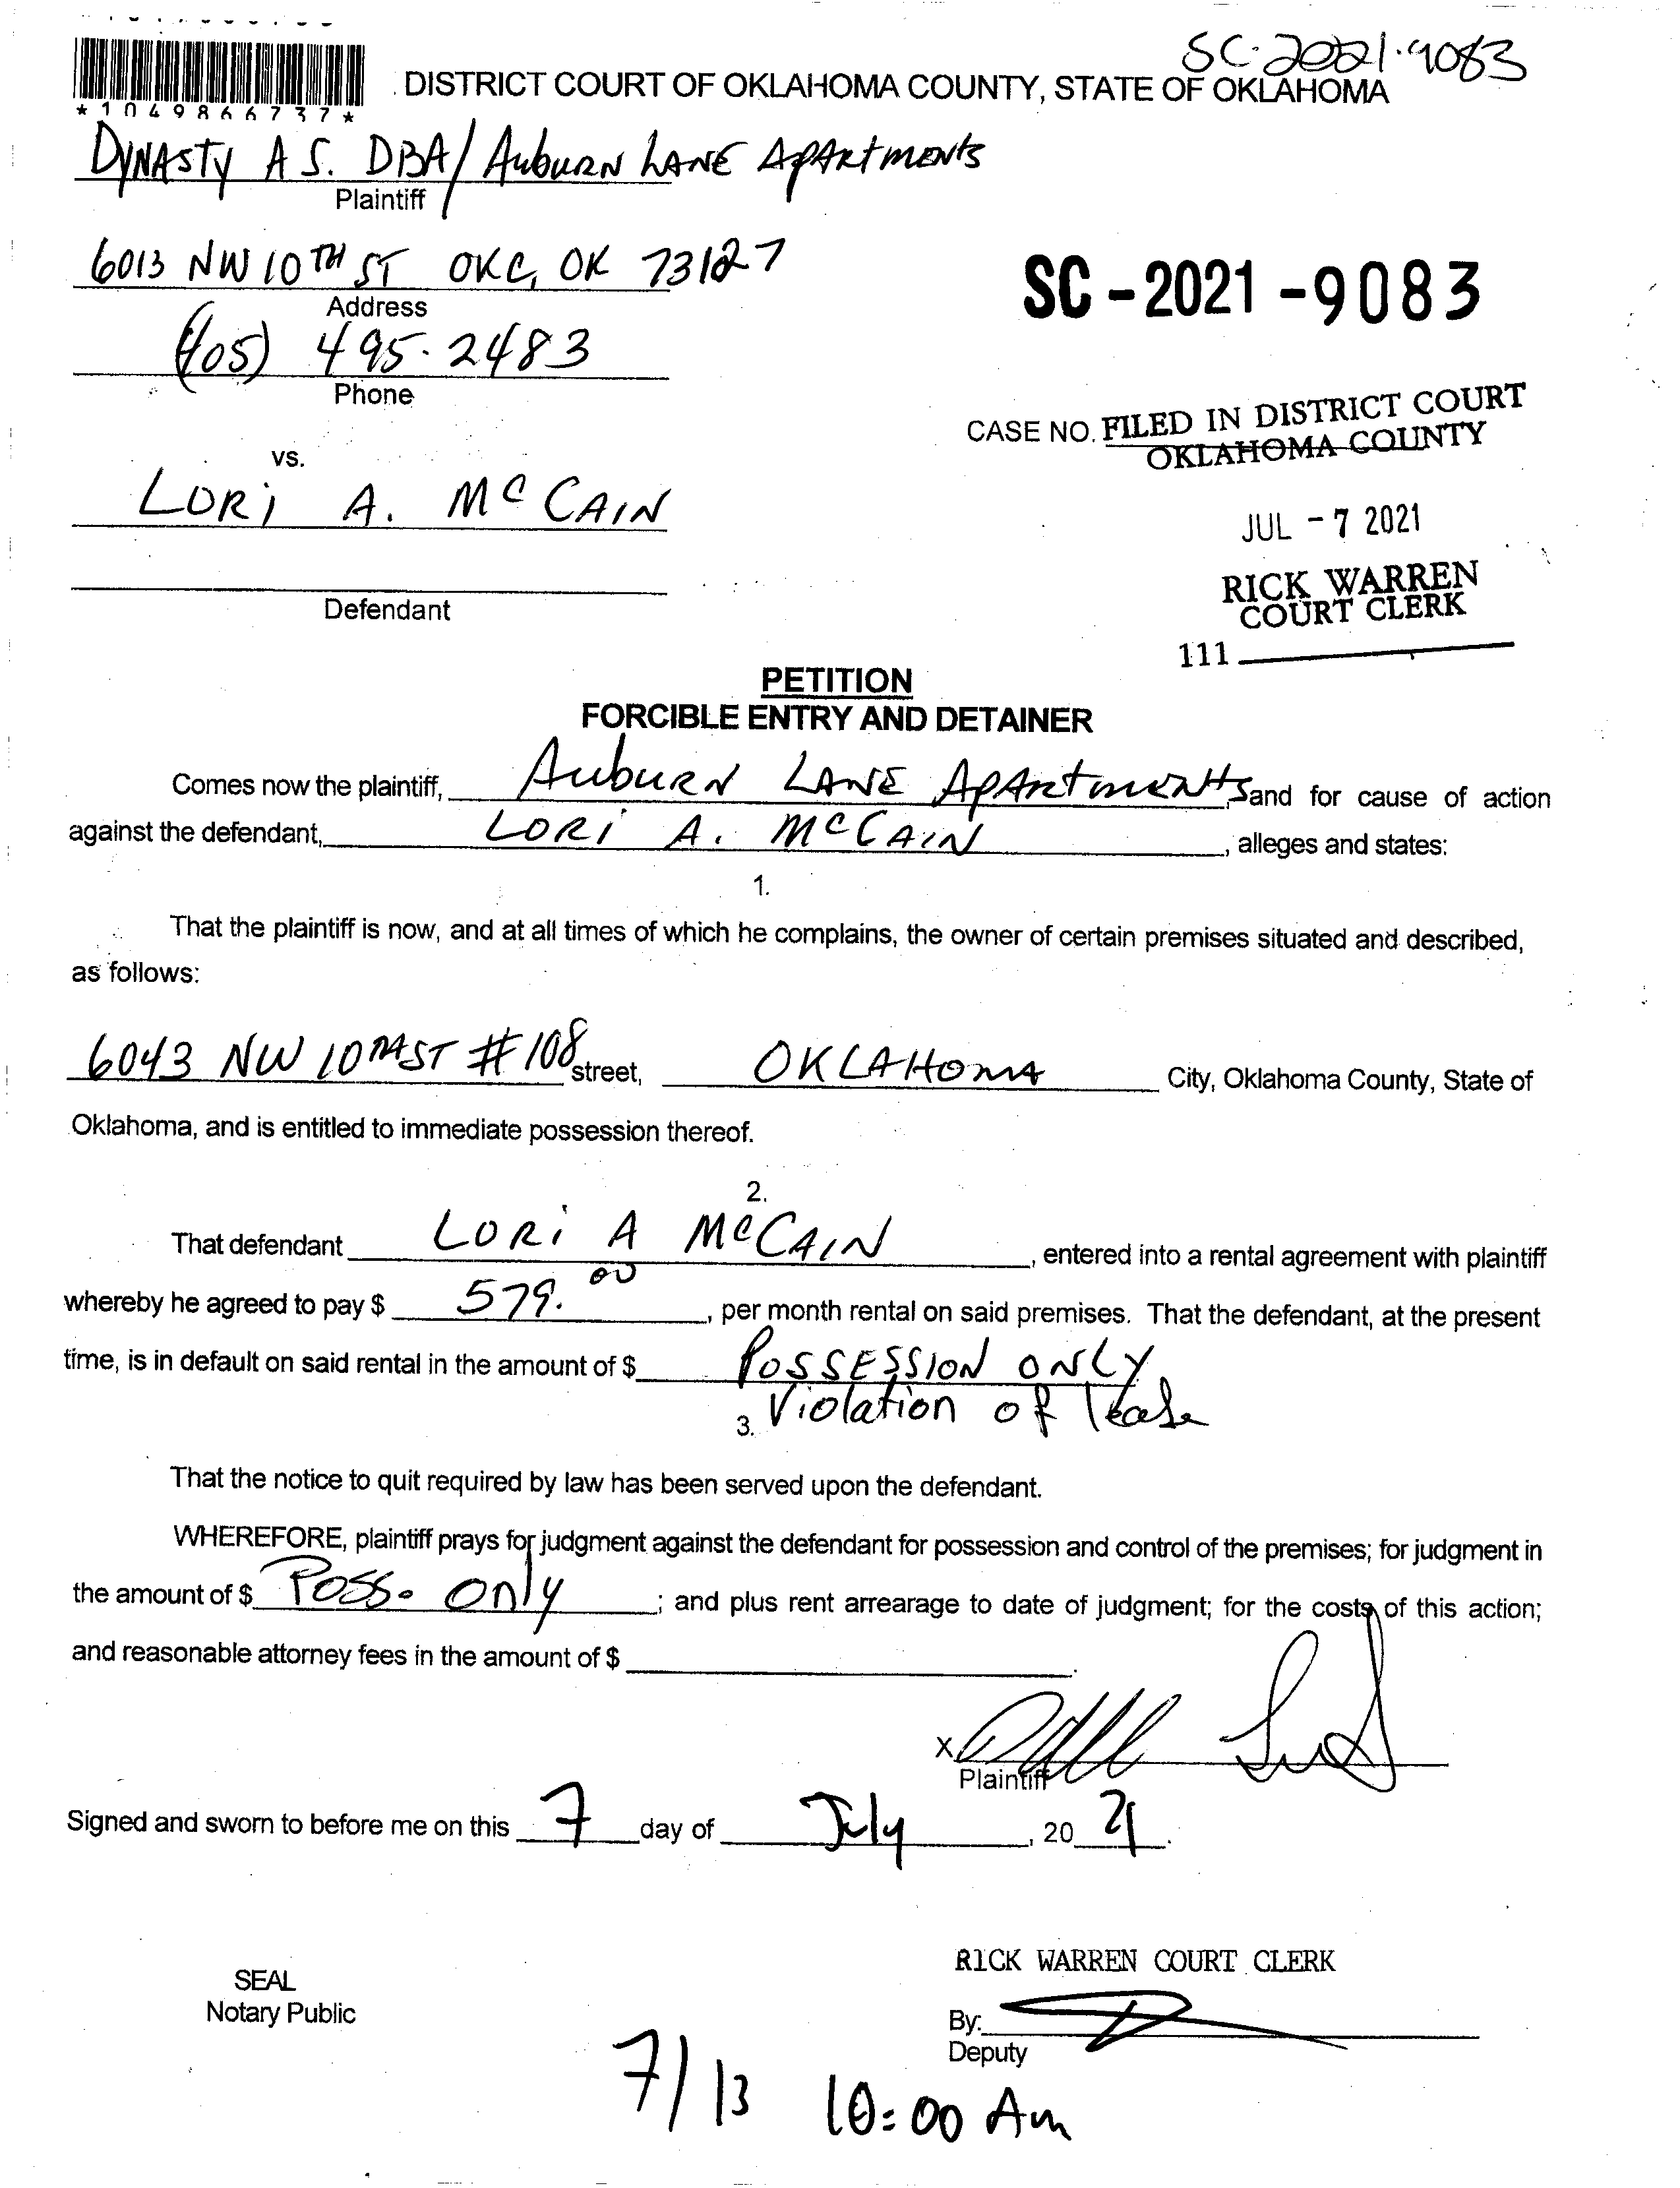 SC-2021-9083
*1049866737*
DISTRICT COURT OF OKLAHOMA COUNTY, STATE OF OKLAHOMA
DYNASTY A S. DBA/ AuburN LANE ApARtmeNts
Plaintiff
6013 NW 10TH ST OKC, OK 73127
Address
SC-2021-9083
(405) 495-2483
Phone
CASE NO. FILED IN DISTRICT COURT
OKLAHOMA COUNTY
vs.
LORi A. McCAIN
JUL -7 2021
Defendant
RICK WARREN
COURT CLERK
111
PETITION
FORCIBLE ENTRY AND DETAINER
Comes now the plaintiff, AuburN LANE ApARtmeNts, and for cause of action
against the defendant, LORi A. McCAIN, alleges and states:
1.
That the plaintiff is now, and at all times of which he complains, the owner of certain premises situated and described,
as follows:
6043 NW 10TH ST #108 street, OKLAHOMA City, Oklahoma County, State of
Oklahoma, and is entitled to immediate possession thereof.
2.
That defendant LORi A McCAIN, entered into a rental agreement with plaintiff
whereby he agreed to pay $ 579.00, per month rental on said premises. That the defendant, at the present
time, is in default on said rental in the amount of $ POSSESSION ONLY
3. Violation of lease
That the notice to quit required by law has been served upon the defendant.
WHEREFORE, plaintiff prays for judgment against the defendant for possession and control of the premises; for judgment in
the amount of $ Poss. only; and plus rent arrearage to date of judgment; for the costs of this action;
and reasonable attorney fees in the amount of $
X
Plaintiff
Signed and sworn to before me on this 7 day of July, 20 21.
RICK WARREN COURT CLERK
SEAL
Notary Public
By:
Deputy
7/13 10:00 Am